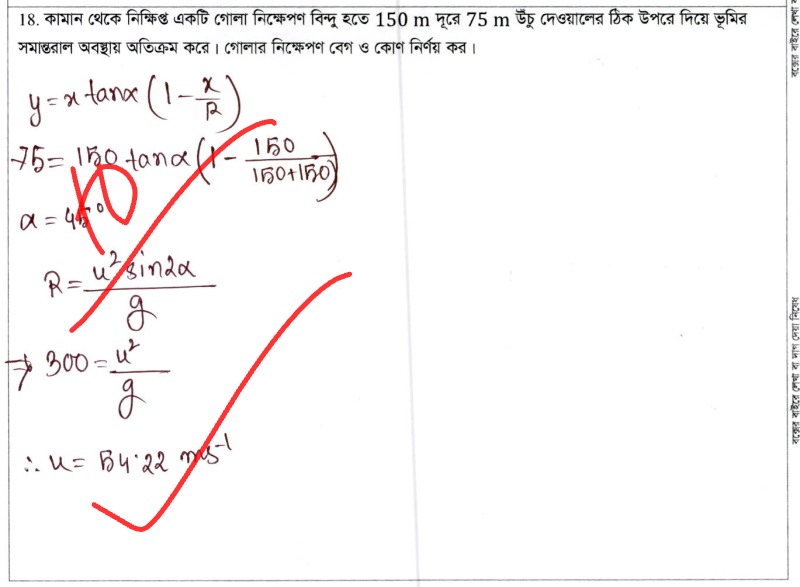 18. কামান থেকে নিক্ষিপ্ত একটি গোলা নিক্ষেপণ বিন্দু হতে 150 m দূরে 75 m উঁচু দেওয়ালের ঠিক উপরে দিয়ে ভূমির
সমান্তরাল অবস্থায় অতিক্রম করে। গোলার নিক্ষেপণ বেগ ও কোণ নির্ণয় কর।
y = x tanα (1 - x/R)
75 = 150 tanα (1 - 150/(150+150))
α = 45°
10
R = u² sin2α / g
⇒ 300 = u²/g
∴ u = 54.22 ms⁻¹
বক্সের বাইরে লেখা বা দাগ দেয়া নিষেধ